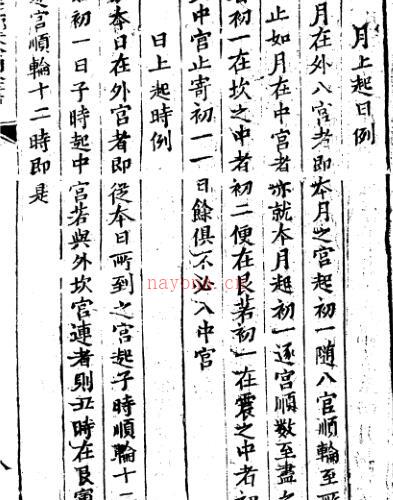 月上起日例
月在外八宮者即本月之宮起初一隨八宮順輪至所
止如月在中宮者亦就本月起初一逐宮順數至盡
初一在坎之中者初二便在艮若初一在震之中者初
中宮止寄初一一日餘俱不必入中宮
日上起時例
本日在外宮者即從本日所到之宮起子時順輪十二
初一日子時起中宮若與外坎宮連者則丑時在艮寅
宮順輪十二時即是
nayona.cn